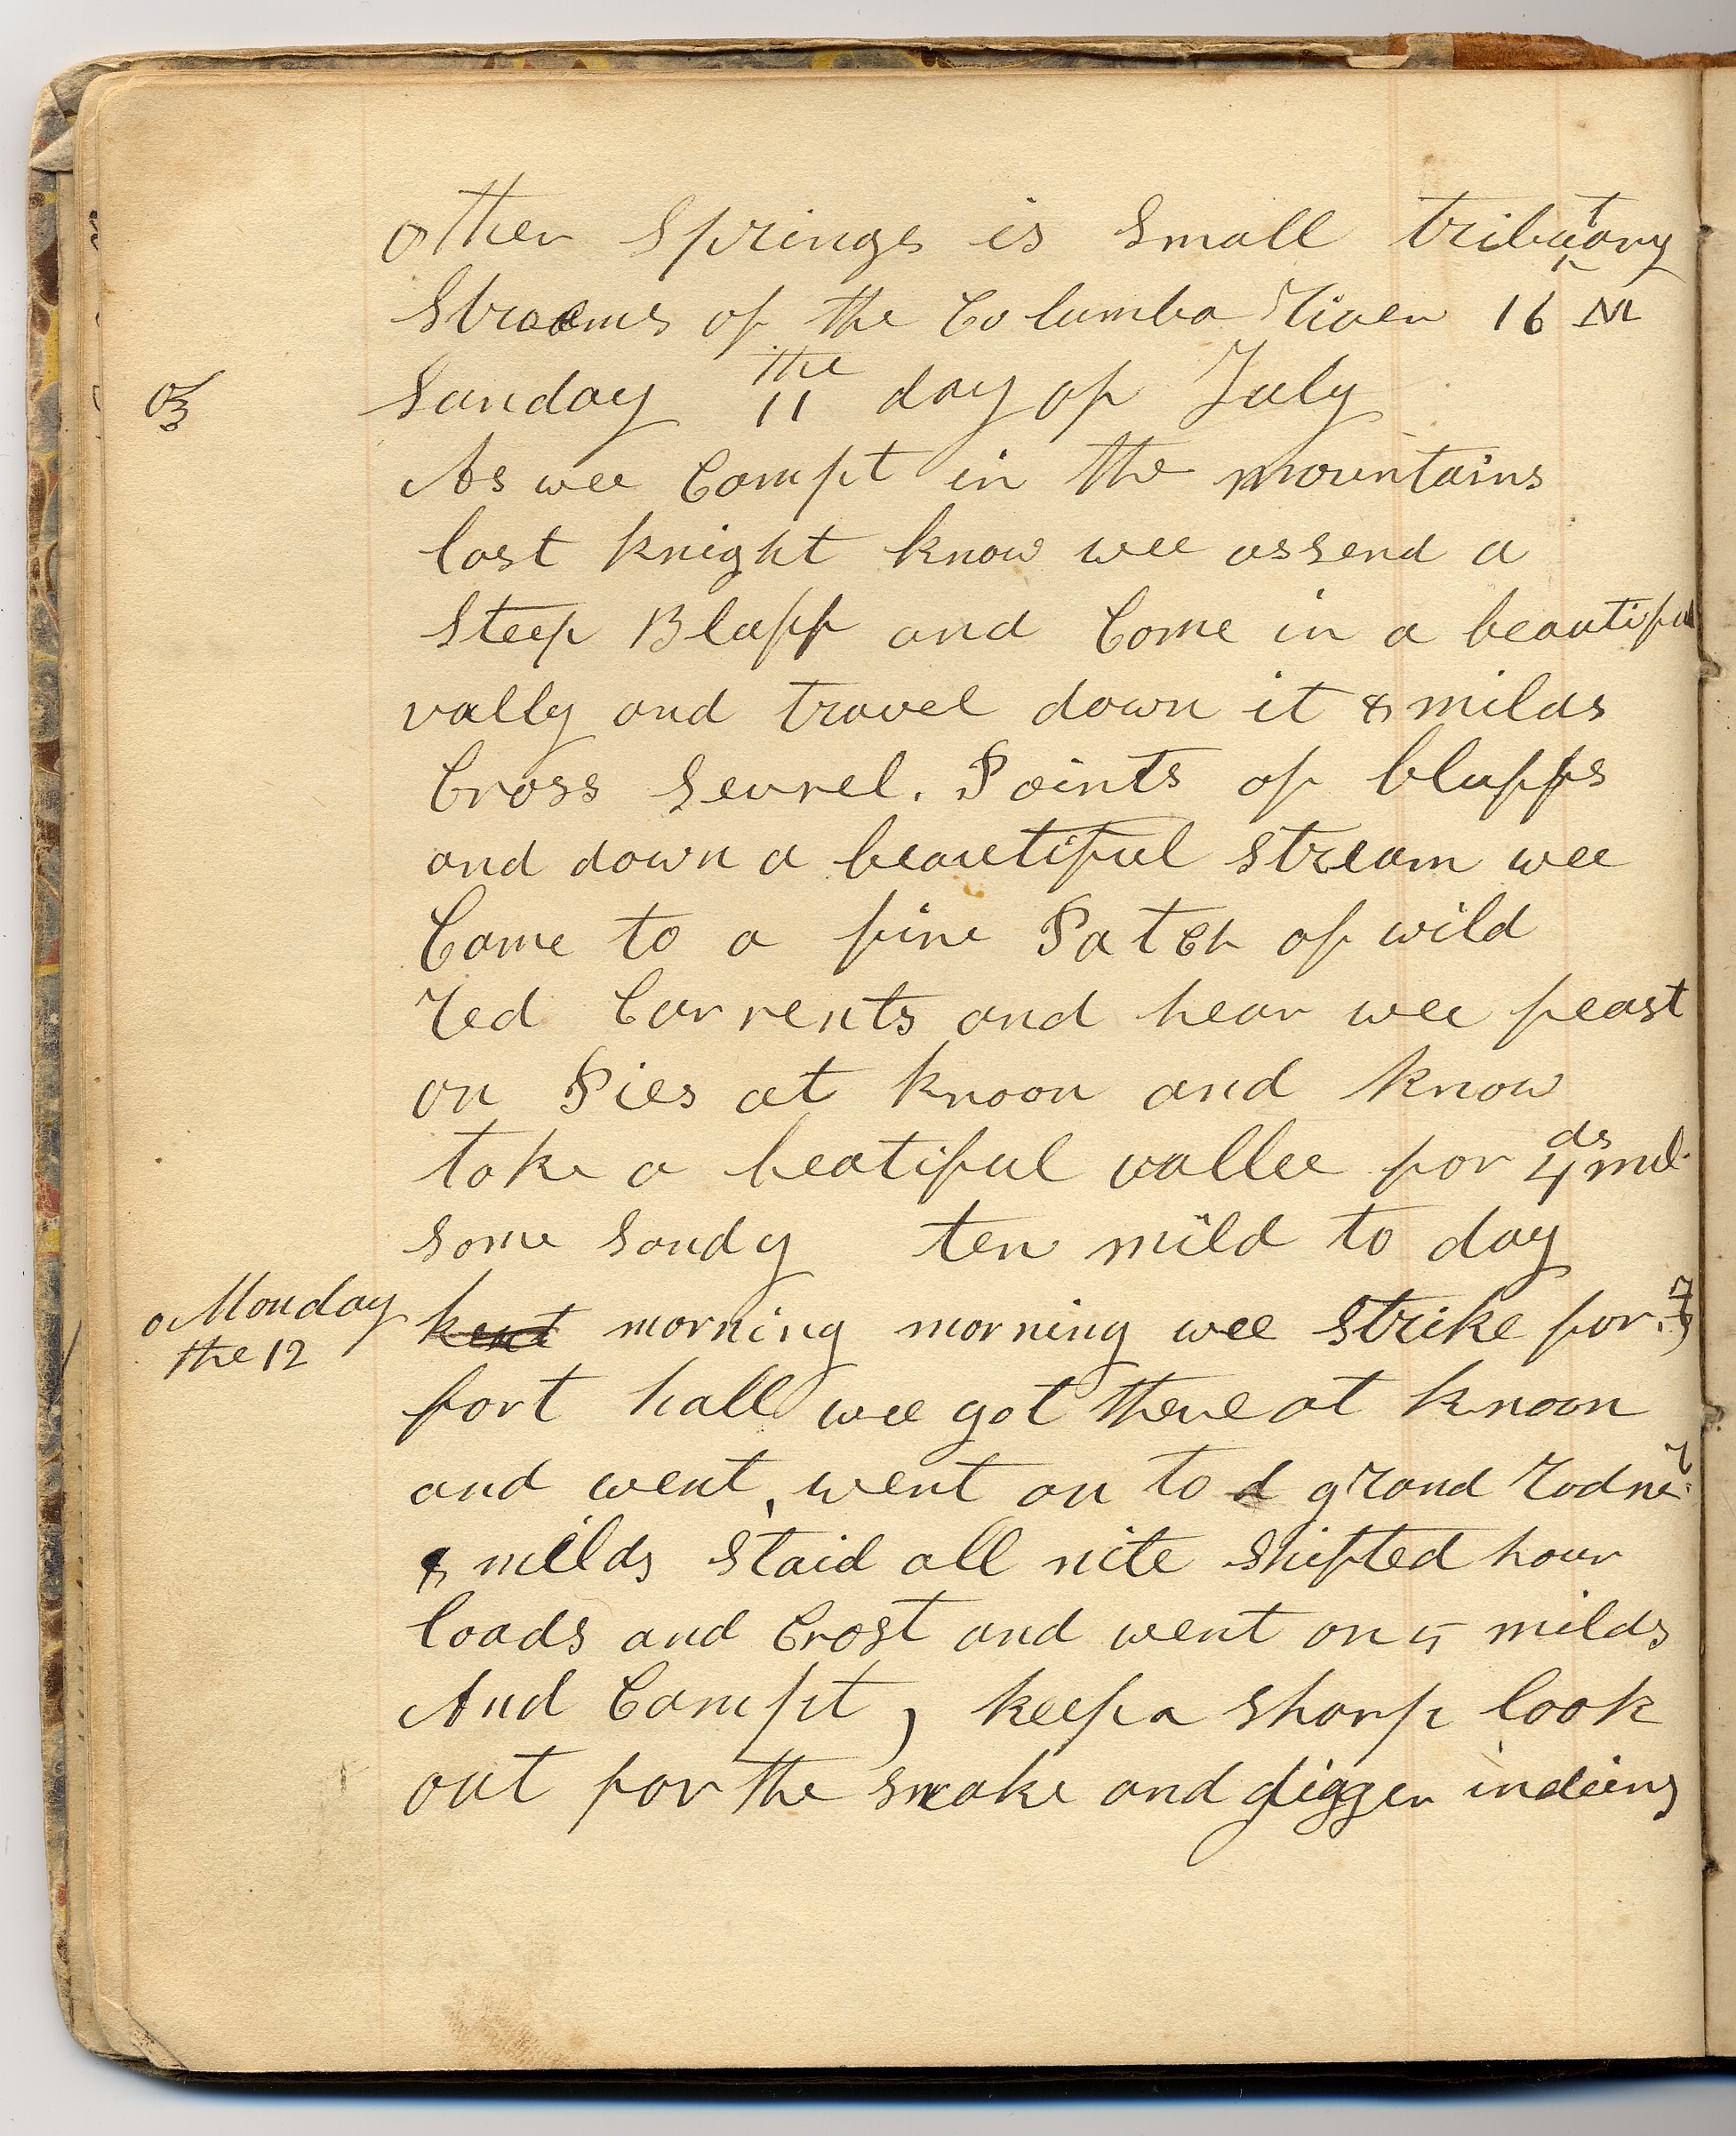 other Springs is Small tributary
Streems of the Columba River 16 M
Sunday the 11 day of July
As wee Campt in the mountains
last knight know wee assend a
Steep Bluff and Come in a beautiful
vally and travel down it 8 milds
Cross Sevrel. Points of bluffs
and down a beautiful stream wee
Come to a fine Patch of wild
red Currents and hear wee feast
on Pies at knoon and know
take a beatiful vallee for 4 milds
some sandy ten mild to day
Monday the 12
morning morning wee strike for
fort hall wee got there at knoon
and went, went on to grand
8 milds staid all nite shifted hour
loads and Crost and went on 5 milds
And Campt, keep a sharp look
out for the snake and digger indeins